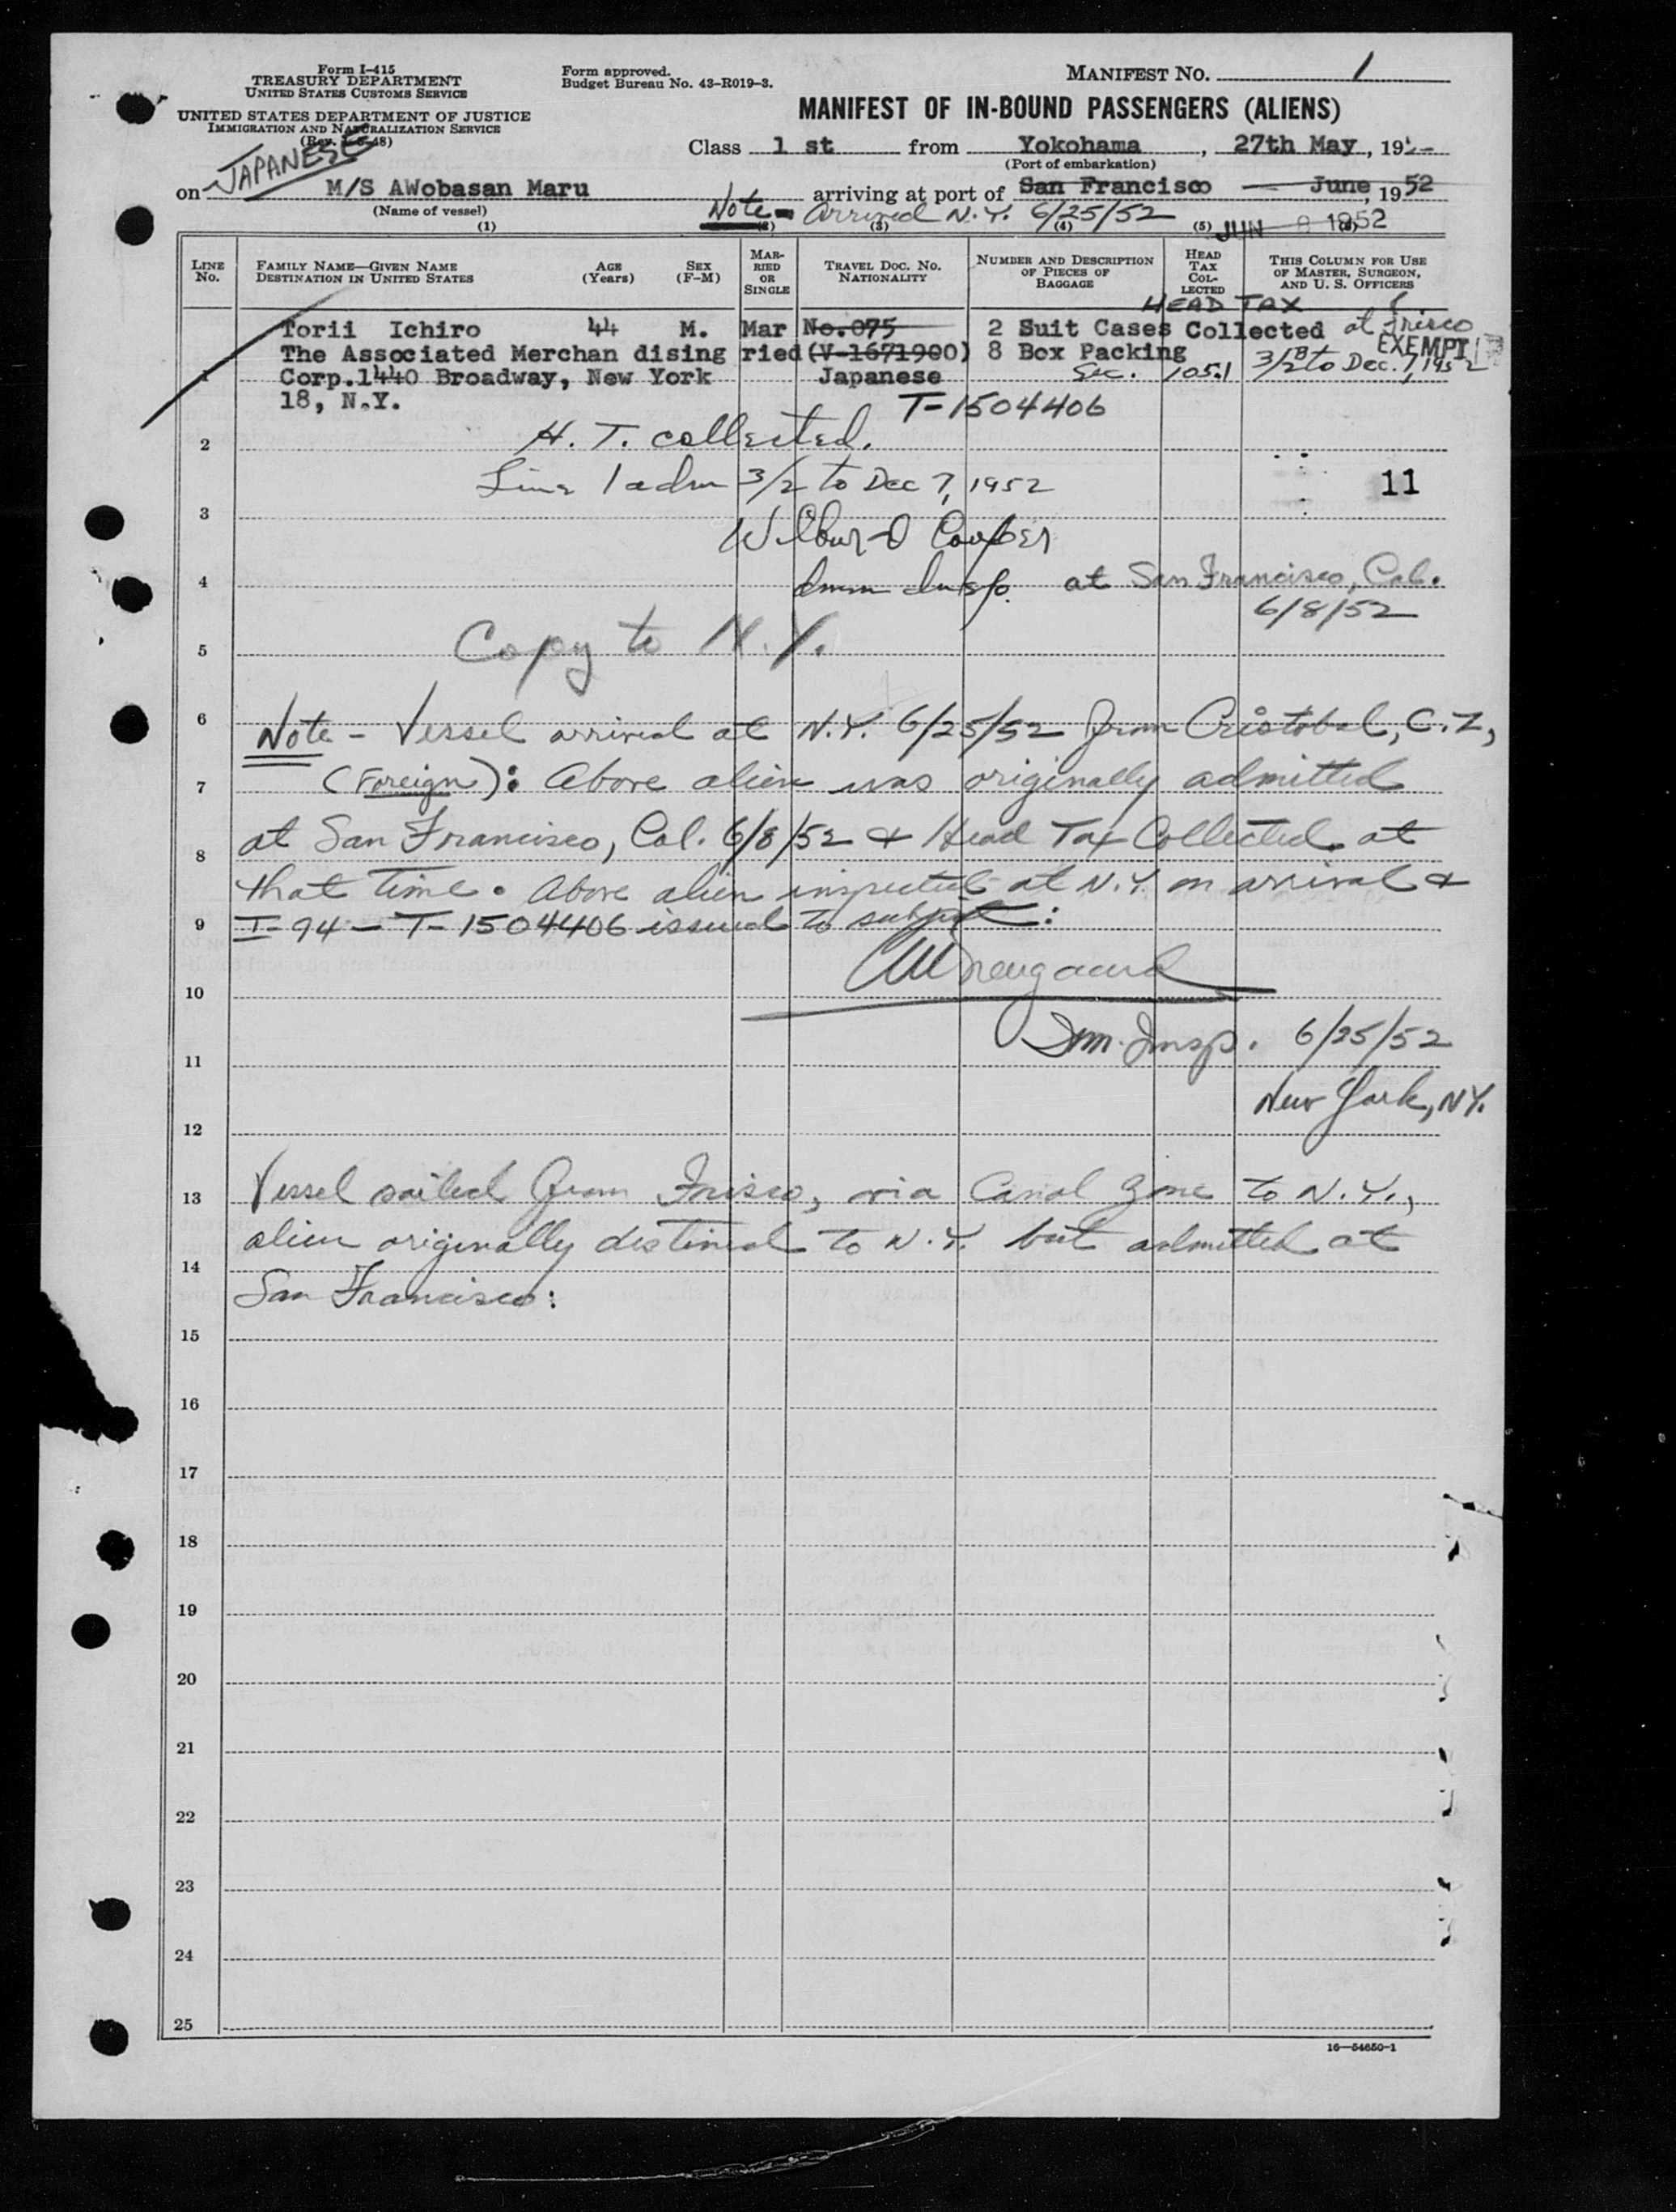 Form I-415
TREASURY DEPARTMENT
UNITED STATES CUSTOMS SERVICE
UNITED STATES DEPARTMENT OF JUSTICE
IMMIGRATION AND NATURALIZATION SERVICE
Form approved.
Budget Bureau No. 43-R019-3.
MANIFEST NO. 1
MANIFEST OF IN-BOUND PASSENGERS (ALIENS)
Class 1 st from Yokohama, 27th May, 19
(Port of embarkation)
JAPANESE
on M/S AWobasan Maru arriving at port of San Francisco June, 1952
(Name of vessel)
Note - Arrived N.Y. 6/25/52
JUN 8 1952
(1) (2) (3) (4) (5)
LINE No.
FAMILY NAME—GIVEN NAME
DESTINATION IN UNITED STATES
AGE (Years)
SEX (F-M)
MARRIED OR SINGLE
TRAVEL DOC. NO. NATIONALITY
NUMBER AND DESCRIPTION OF PIECES OF BAGGAGE
HEAD TAX COLLECTED
THIS COLUMN FOR USE OF MASTER, SURGEON, AND U. S. OFFICERS
HEAD TAX
Torii Ichiro 44 M. Mar No.075 2 Suit Cases Collected at Frisco
The Associated Merchan dising ried (V-1671900) 8 Box Packing EXEMPT
1 Corp.1440 Broadway, New York Japanese Sec. 105.1 3/2 to Dec. 7, 1952
18, N.Y. T-1504406
2 H. T. collected.
Line 1 adm 3/2 to Dec 7, 1952 11
3
Wilbur D Cooper
4 Imm Insp. at San Francisco, Cal.
6/8/52
5 Copy to N.Y.
6 Note - Vessel arrived at N.Y. 6/25/52 from Cristobal, C.Z,
7 (Foreign): Above alien was originally admitted
8 at San Francisco, Cal. 6/8/52 & Head Tax Collected at
that time. Above alien inspected at N.Y. on arrival &
9 I-94 - T-1504406 issued to subject:
10
Imm. Insp. 6/25/52
11
New York, NY.
12
13 Vessel sailed from Frisco, via Canal Zone to N.Y.,
alien originally destined to N.Y. but admitted at
14
San Francisco:
15
16
17
18
19
20
21
22
23
24
25
16—54650-1